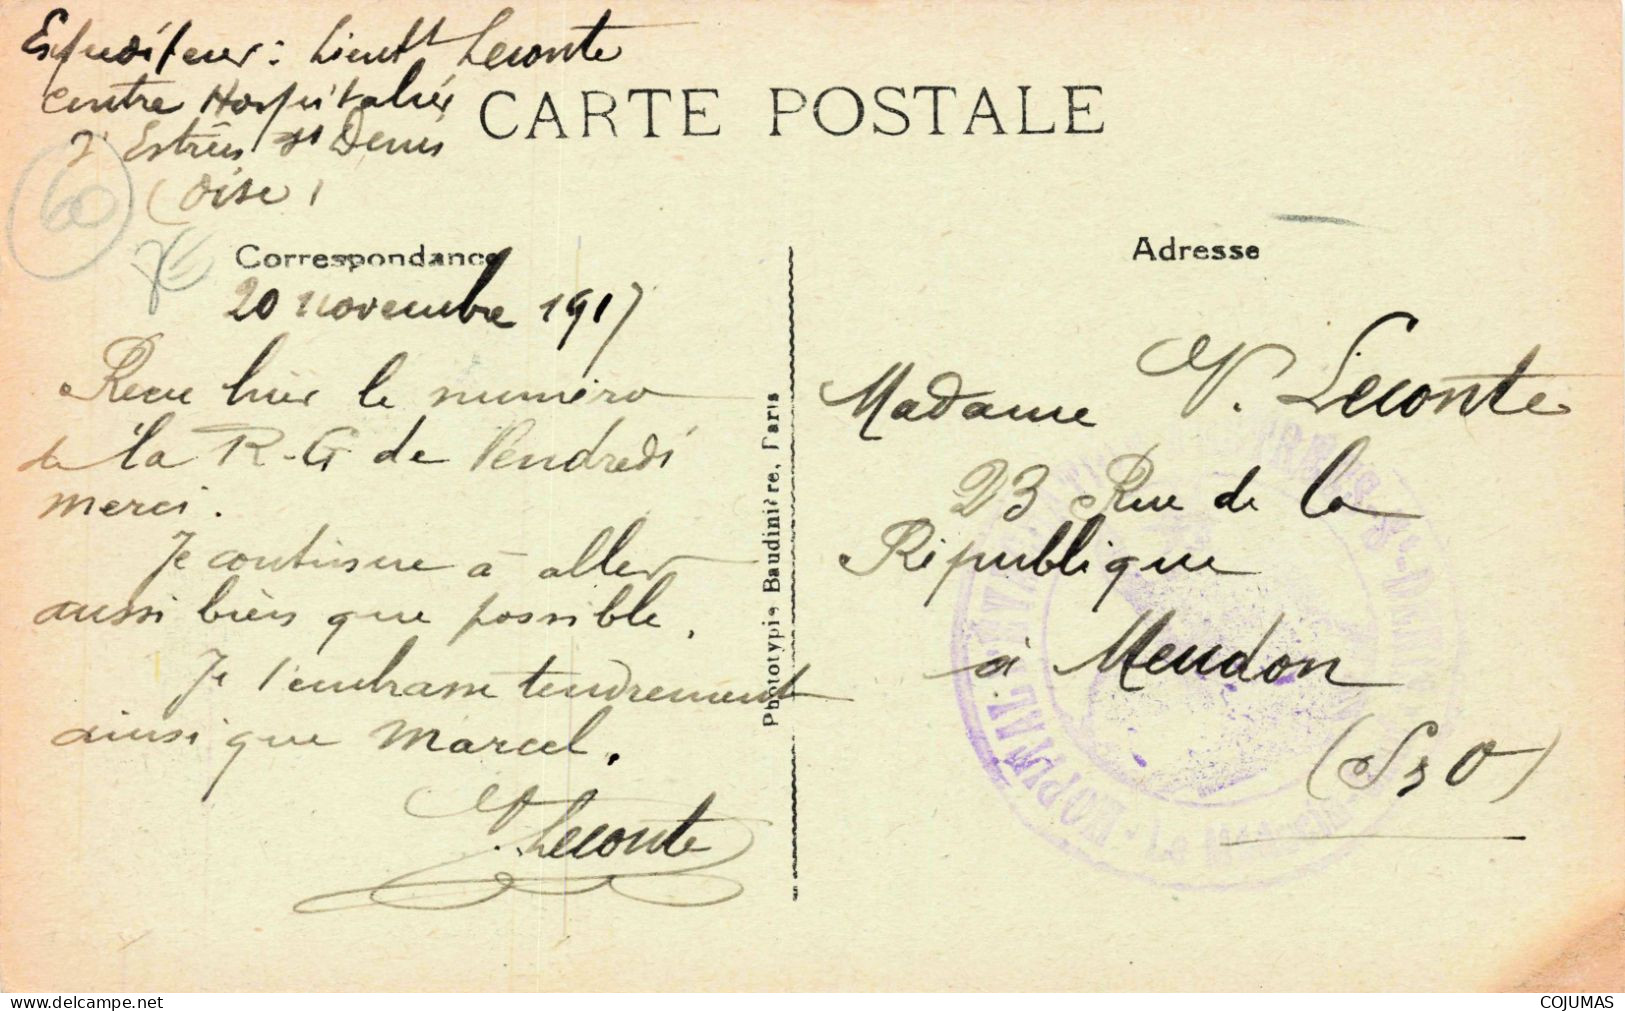 Expéditeur : Lieutt Leconte
Centre Hospitalier
d'Estrées St Denis
(Oise)
60
CARTE POSTALE
Correspondance
20 novembre 1917
Recu hier le numéro
de la R-G de Vendredi
merci.
Je continue à aller
aussi bien que possible.
Je t'embrasse tendrement
ainsi que Marcel.
Leconte
Phototypie Baudinière, Paris
Adresse
Madame V. Leconte
23 Rue de la
République
à Meudon
(S & O)
HOPITAL D'EVACUATION
COJUMAS
www.delcampe.net